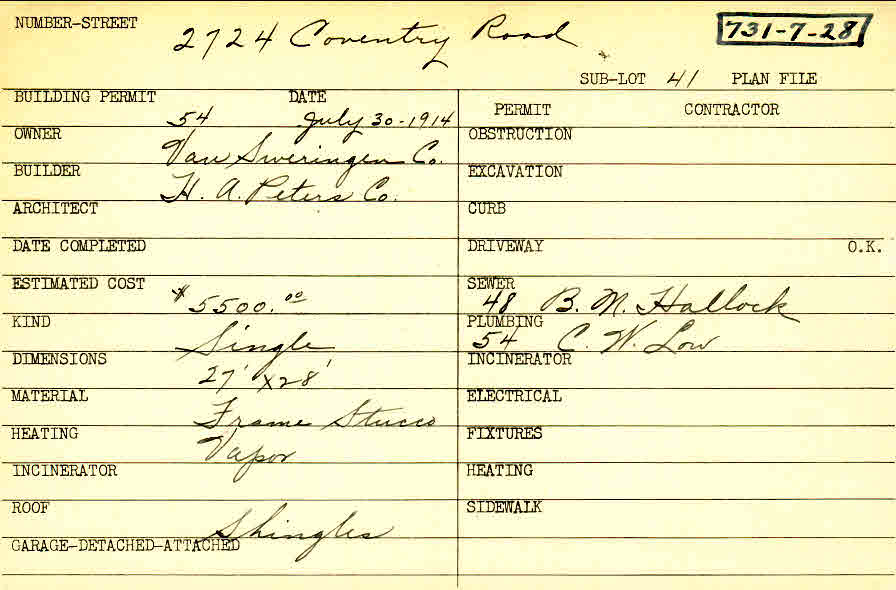 NUMBER-STREET 2724 Coventry Road 731-7-28
SUB-LOT 41 PLAN FILE
BUILDING PERMIT 54 DATE July 30-1914
PERMIT CONTRACTOR
OWNER Van Sweringen Co.
OBSTRUCTION
BUILDER H. A. Peters Co.
EXCAVATION
ARCHITECT
CURB
DATE COMPLETED
DRIVEWAY O.K.
ESTIMATED COST $5500.00
SEWER 48 B. M. Hallock
KIND Single
PLUMBING 54 C. W. Low
DIMENSIONS 27' x 28'
INCINERATOR
MATERIAL Frame Stucco
ELECTRICAL
HEATING Vapor
FIXTURES
INCINERATOR
HEATING
ROOF Shingles
SIDEWALK
GARAGE-DETACHED-ATTACHED